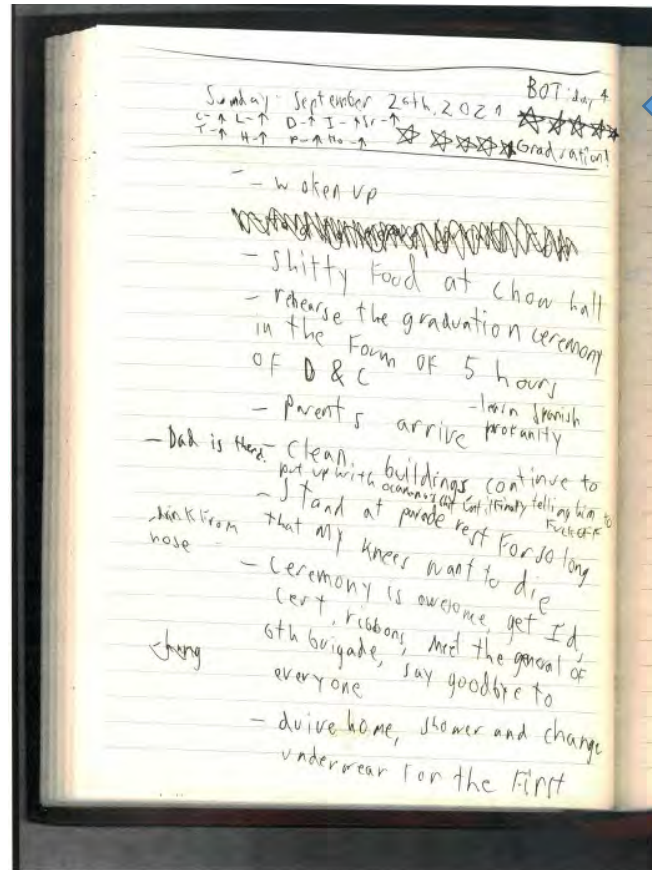 BOT: day 4
Sunday - September 26th, 2021
C-↑ L-↑ D-↑ I-↑ Sr-↑
T-↑ H-↑ P-↑ Ho-↑ Graduation!
- woken up
- shitty Food at chow hall
- rehearse the graduation ceremony
in the Form OF 5 hours
OF D & C
- Parents arrive
- learn Spanish
profanity
- Dad is there.
- Clean buildings, continue to
put up with until finally telling him to
Fuck off
- Stand at parade rest For so long
that my knees want to die
- drink From
hose
- Ceremony is awesome, get Id,
cert, ribbons, meet the general OF
6th brigade, say goodbye to
everyone
- drive home, shower and change
underwear for the First